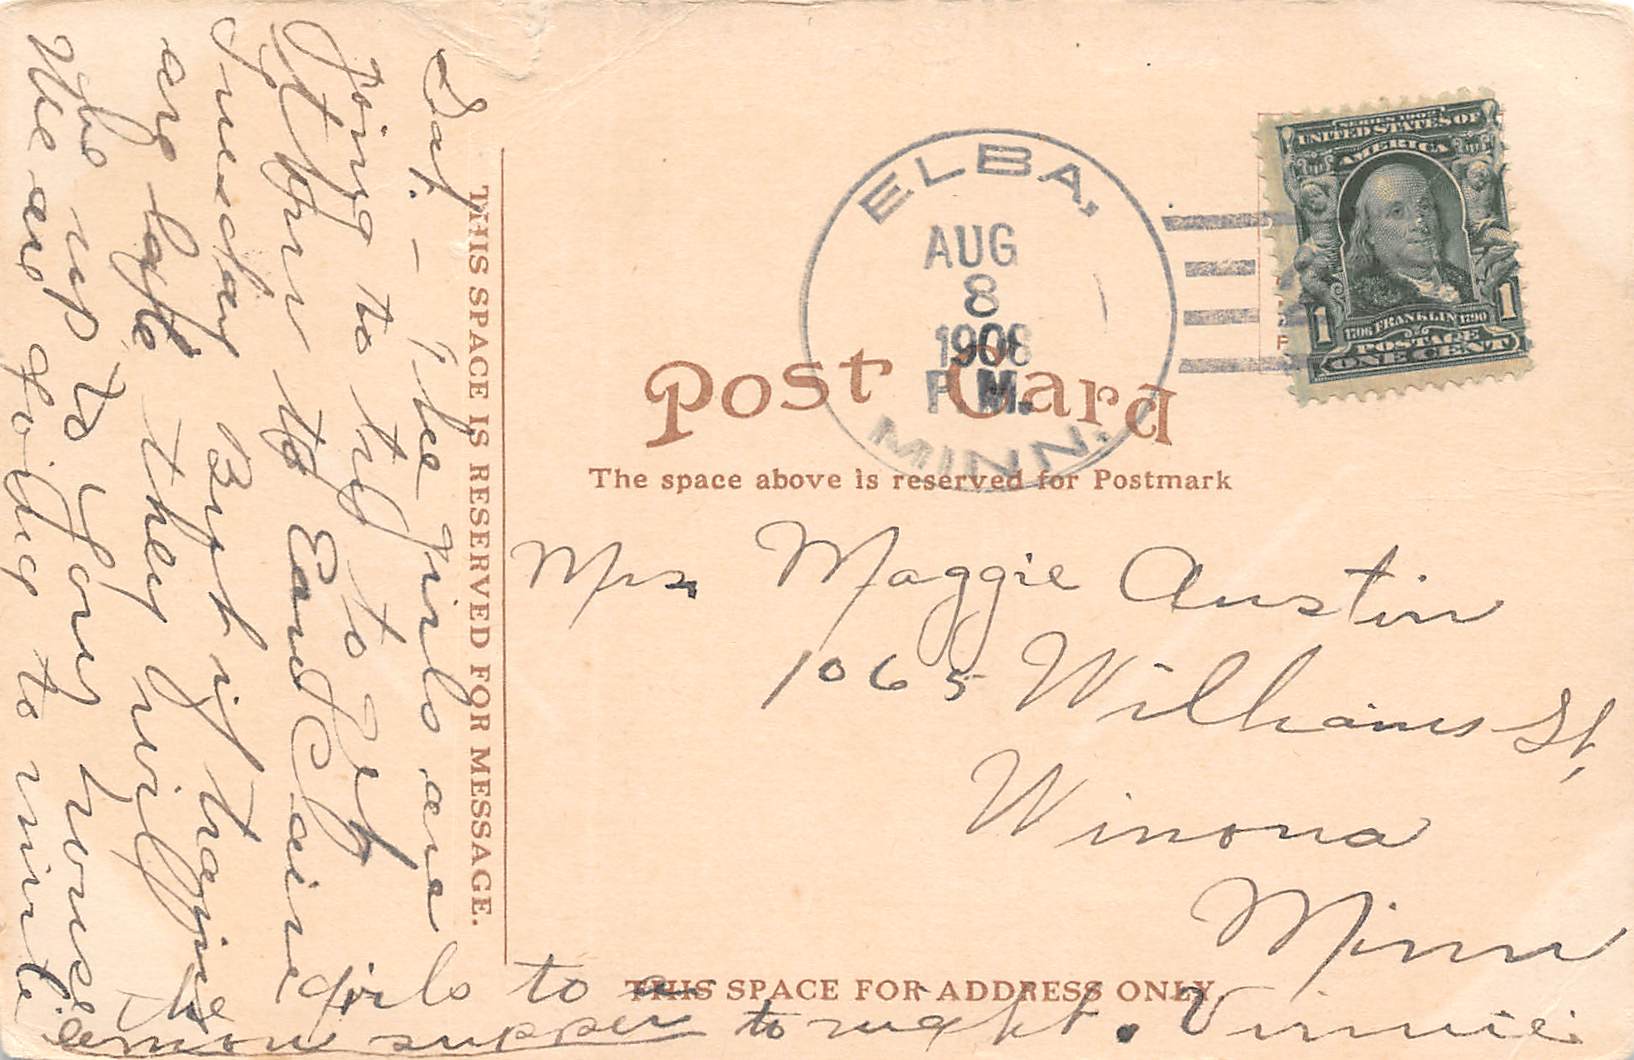 ELBA,
AUG
8
1908
P.M.
MINN.
SERIES 1902
UNITED STATES OF
AMERICA
1706 FRANKLIN 1790
1 1
POSTAGE
ONE CENT
Post Card
The space above is reserved for Postmark
THIS SPACE IS RESERVED FOR MESSAGE.
Mrs Maggie Austin
1065 Williams St,
Winona
Minn
THIS SPACE FOR ADDRESS ONLY.
Say. - The girls are
going to try to get
to
Tuesday But if trains
are late they will
be up to your house
We are going to invite
the girls to a
lemon supper to night. Vinnie